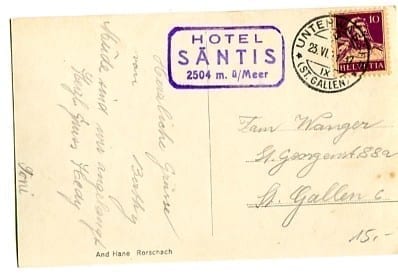 HOTEL
SÄNTIS
2504 m. ü/Meer
UNTER
23.VI
IX
(ST. GALLEN)
10
HELVETIA
Herzliche Grüsse
von
Müde sind wir angelangt
Herzl. Gruss Hedy
Toni
Fam Wanger
St. Georgenst. 88a
St. Gallen
15.-
And Hane Rorschach